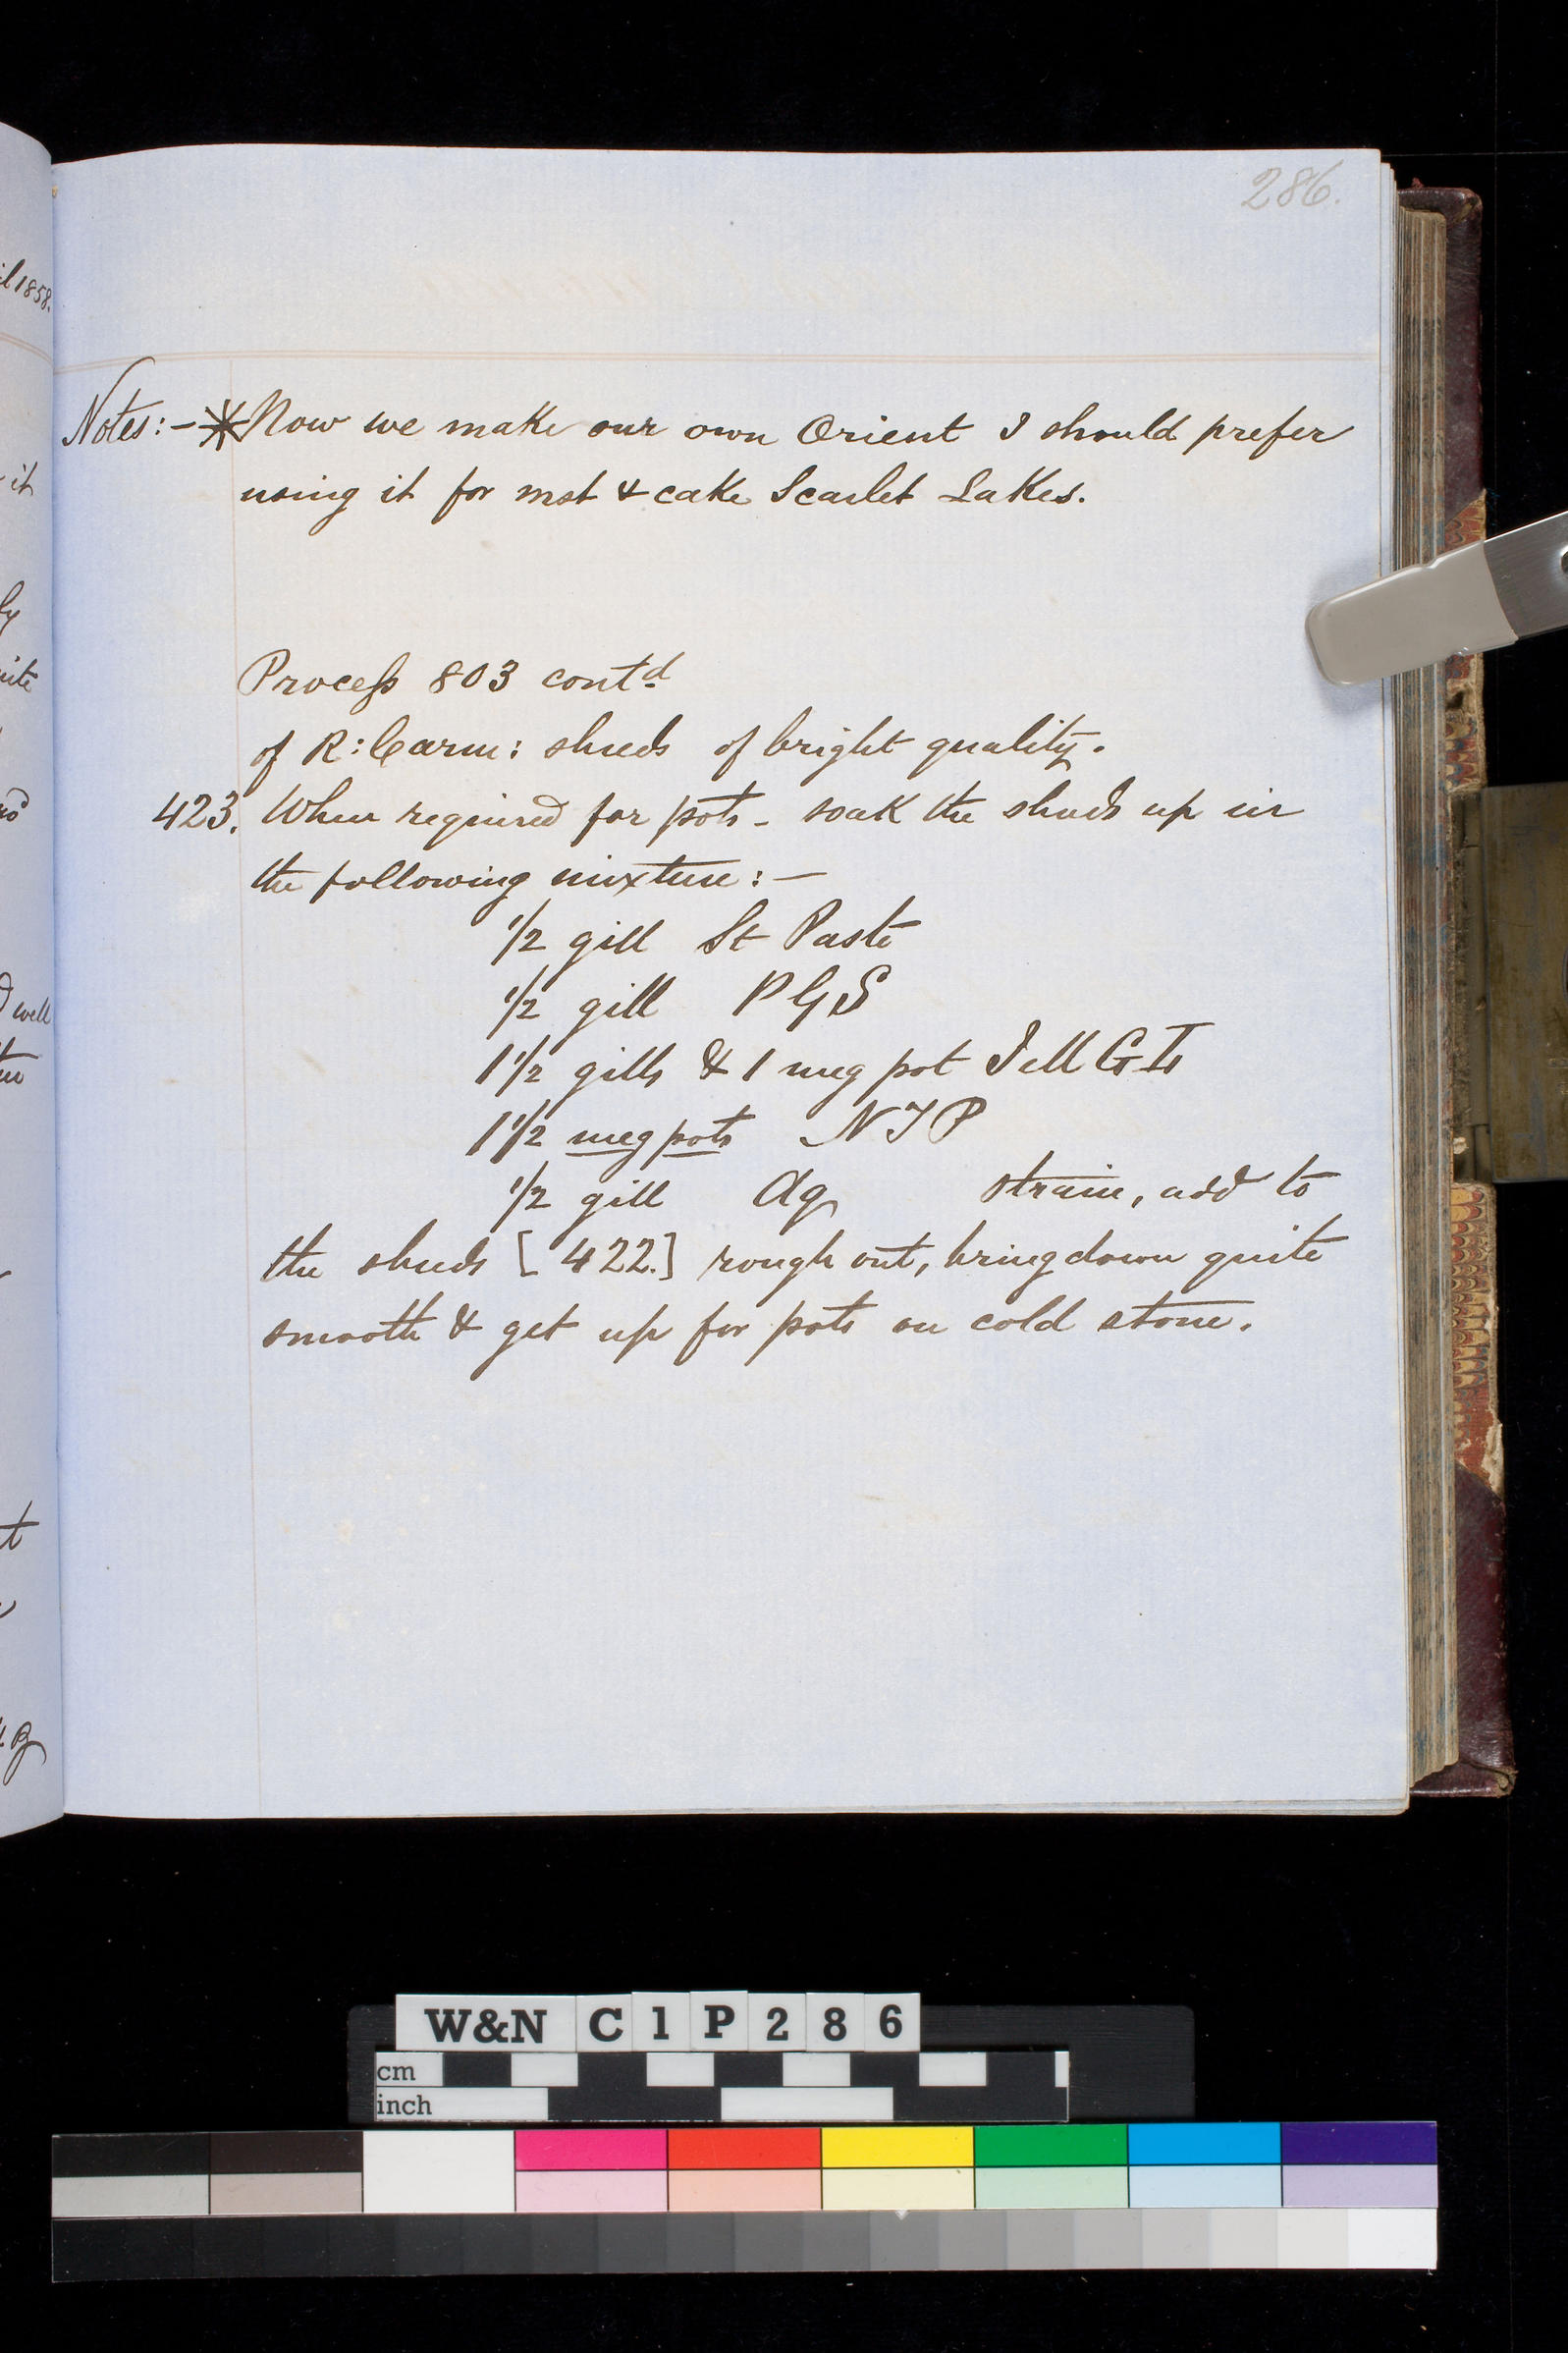 286.
il 1858.
Notes:- * Now we make our own Orient I should prefer
using it for mst & cake Scarlet Lakes.
Process 803 cont.d
of R: Carm: shreds of bright quality.
423. When required for pots - soak the shreds up in
the following mixture:-
1/2 gill St Paste
1/2 gill P G S
1 1/2 gills & 1 meg pot Jell G I
1 1/2 meg pots N J P
1/2 gill Aq strain, add to
the shreds [ 422.] rough out, bring down quite
smooth & get up for pots on cold stone.
it
well
W&N C1P286
cm
inch